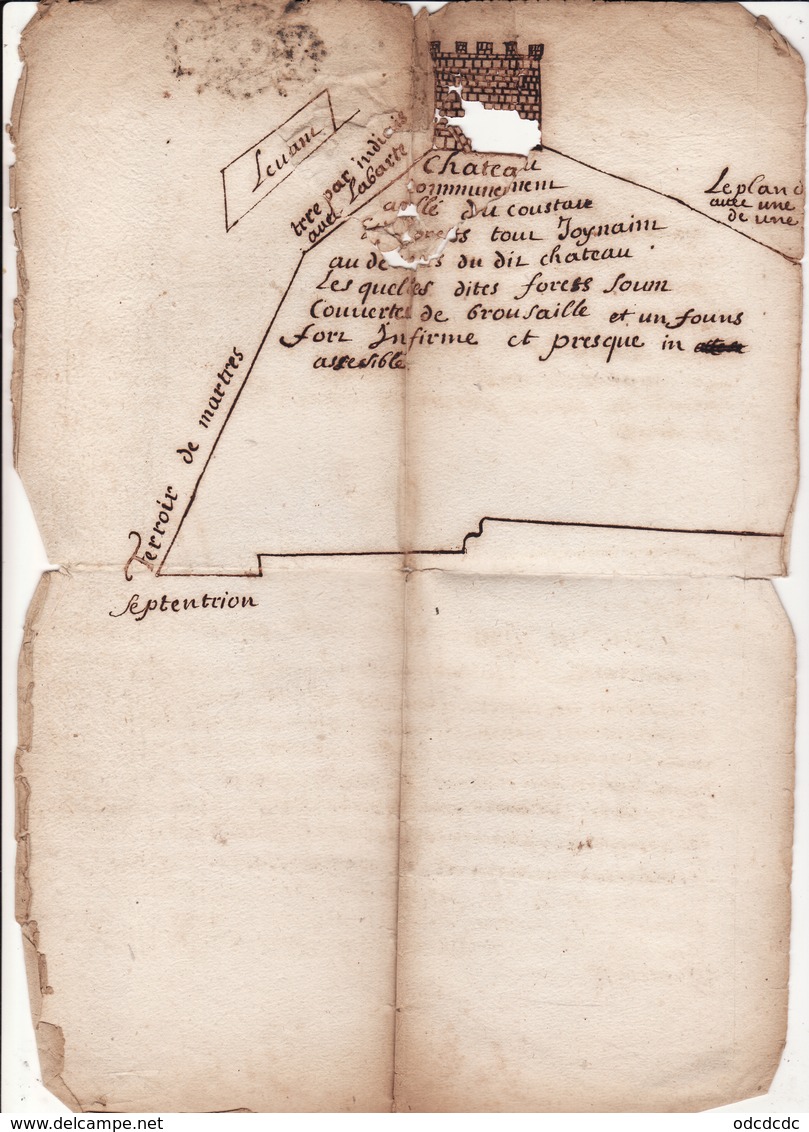 Levant
terre par indivis
avec Labarte
Chateau
communement
apellé du coustau
tout Joynaint
au dessus du dit chateau
Les quelles dites forests sount
Couvertes de brousaille et un founs
fort Infirme et presque in
assesible
Le plan
avec une
de une
Terroir de martres
septentrion
odcdcdc